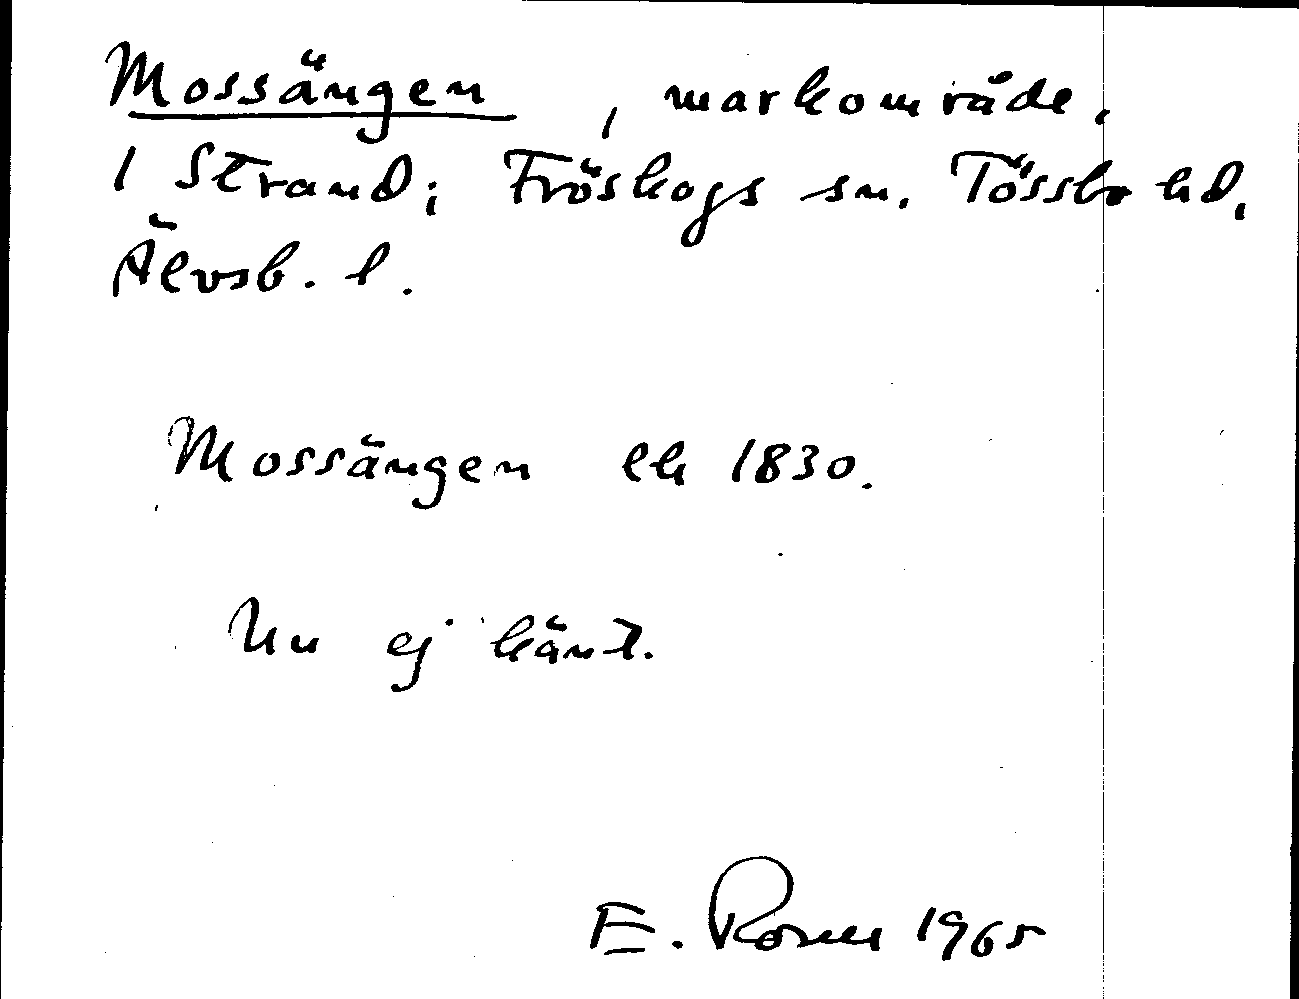 Mossängen, markområde.
1 Strand; Fröskogs sn. Tössbo hd.
Älvsb. l.
Mossängen ek 1830.
Nu ej känt.
E. 1965